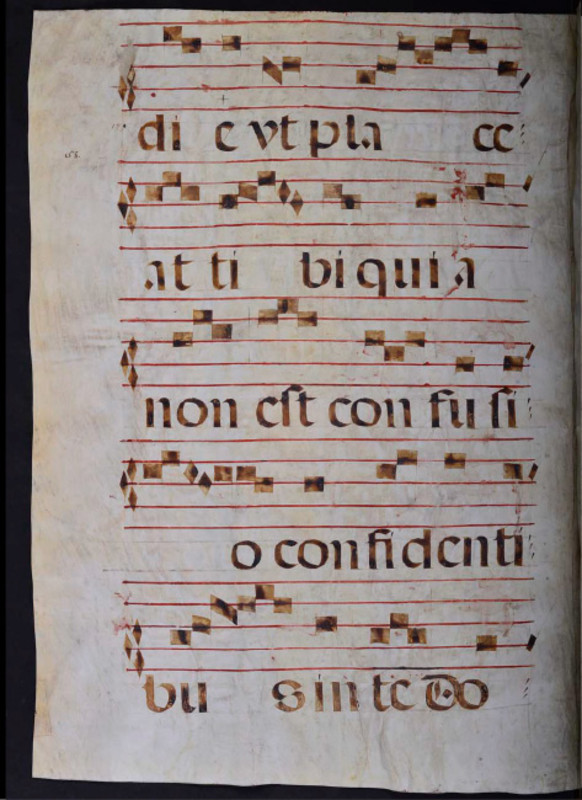 di e vt pla ce
at ti bi qui a
non est con fu si
o confidenti
bu s in te Do